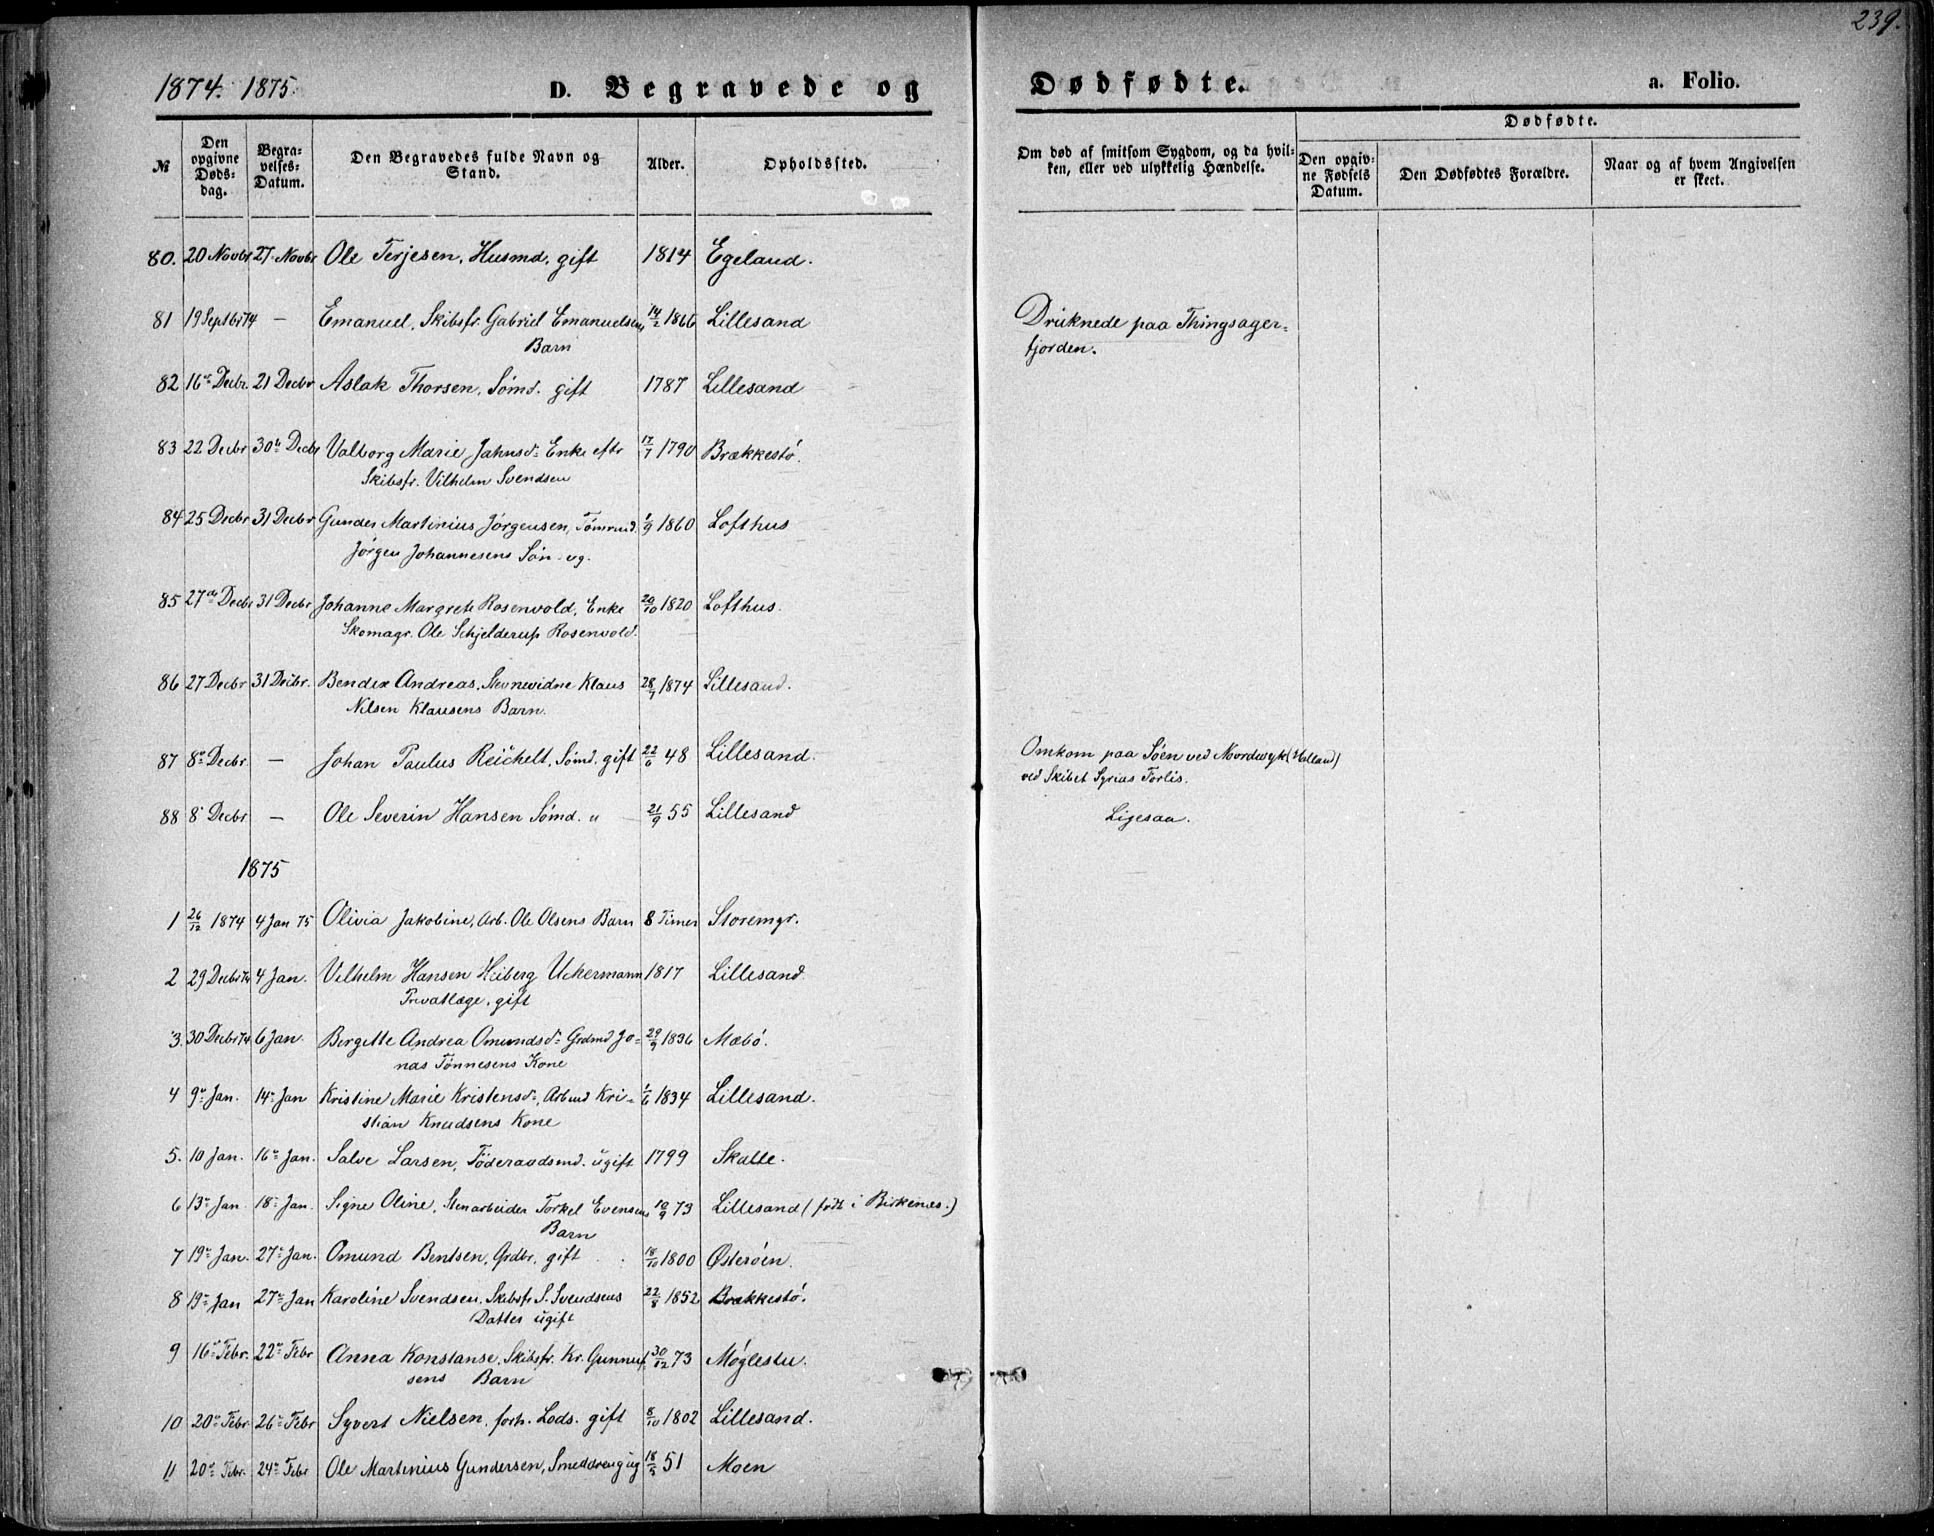 239.
1874. 1875.
D. Begravede og Dødfødte.
a. Folio.
№
Den opgivne Døds-dag.
Begra-velses-Datum.
Den Begravedes fulde Navn og Stand.
Alder.
Opholdssted.
Om død af smitsom Sygdom, og da hvil-ken, eller ved ulykkelig Hændelse.
Dødfødte.
Den opgiv-ne Fødsels Datum.
Den Dødfødtes Forældre.
Naar og af hvem Angivelsen er skeet.
80. 20 Novbr 27. Novbr Ole Terjesen, Husmd, gift 1814 Egeland.
81 19 Septbr 74 — Emanuel, Skibsfr. Gabriel Emanuelsens 14/2 1866 Lillesand Druknede paa Thingsager=
Barn fjorden.
82 16de Decbr. 21 Decbr Aslak Thorsen, Sømd. gift 1787 Lillesand
83 22 Decbr 30te Decbr Valborg Marie Jahnsd: Enke eftr 17/7 1790 Brækkestø.
Skibsfr. Vilhelm Svendsen
84 25 Decbr 31 Decbr Gunder Martinius Jørgensen, Tømmd. 1/9 1860 Lofthus
Jørgen Johannesens Søn ug.
85 27de Decbr 31 Decbr Johanne Margrete Rosenvold, Enke 20/10 1820 Lofthus.
Skomagr. Ole Schjelderup Rosenvold.
86 27 Decbr 31 Decbr. Bendix Andreas, Stevnevidne Klaus 28/7 1874 Lillesand.
Nilsen Klausens Barn.
87 8de Decbr. — Johan Paulus Reichelt, Sømd. gift 22/6 48 Lillesand. Omkom paa Søen ved Noordwyk (Holland)
ved Skibet Syrias Forlis.
88 8de Decbr — Ole Severin Hansen Sømd. " 21/9 55 Lillesand Ligesaa.
1875
1 26/12 1874 4 Jan 75 Olivia Jakobine, Arb. Ole Olsens Barn 8 Timer Storemyr.
2 29 Decbr 74 4 Jan. Vilhelm Hansen Heiberg Uckermann 1817 Lillesand.
Privatlæge, gift
3. 30 Decbr 74 6 Jan. Bergitte Andrea Omundsd: Grdmd Jo= 29/9 1836 Mæbø.
nas Tønnesens Kone
4 9de Jan. 14de Jan Kristine Marie Kristensd:, Arbmd Kri= 1/6 1834 Lillesand.
stian Knudsens Kone
5. 10 Jan. 16de Jan. Salve Larsen, Føderaadsmd. ugift 1799 Skalle.
6 13de Jan 18de Jan. Signe Oline, Stenarbeider Torkel Evensens 10/9 73 Lillesand (født i Birkenes.)
Barn
7 19de Jan. 27de Jan. Omund Bentsen, Grdbr, gift 18/10 1800 Østerøen.
8 19de Jan 27de Jan Karoline Svendsen, Skibsfr S. Svendsens 22/8 1852 Brækkestø.
Datter ugift
9 16de Febr. 22de Febr Anna Konstanse, Skibsfr. Kr. Gunnuf= 30/12 73 Møglestu.
sens Barn
10 20de Febr. 26de Febr Syvert Nielsen, forh. Lods. gift 8/10 1802 Lillesand.
11 20de Febr. 24de Febr Ole Martinius Gundersen, Smeddreng ug 18/5 51 Moen